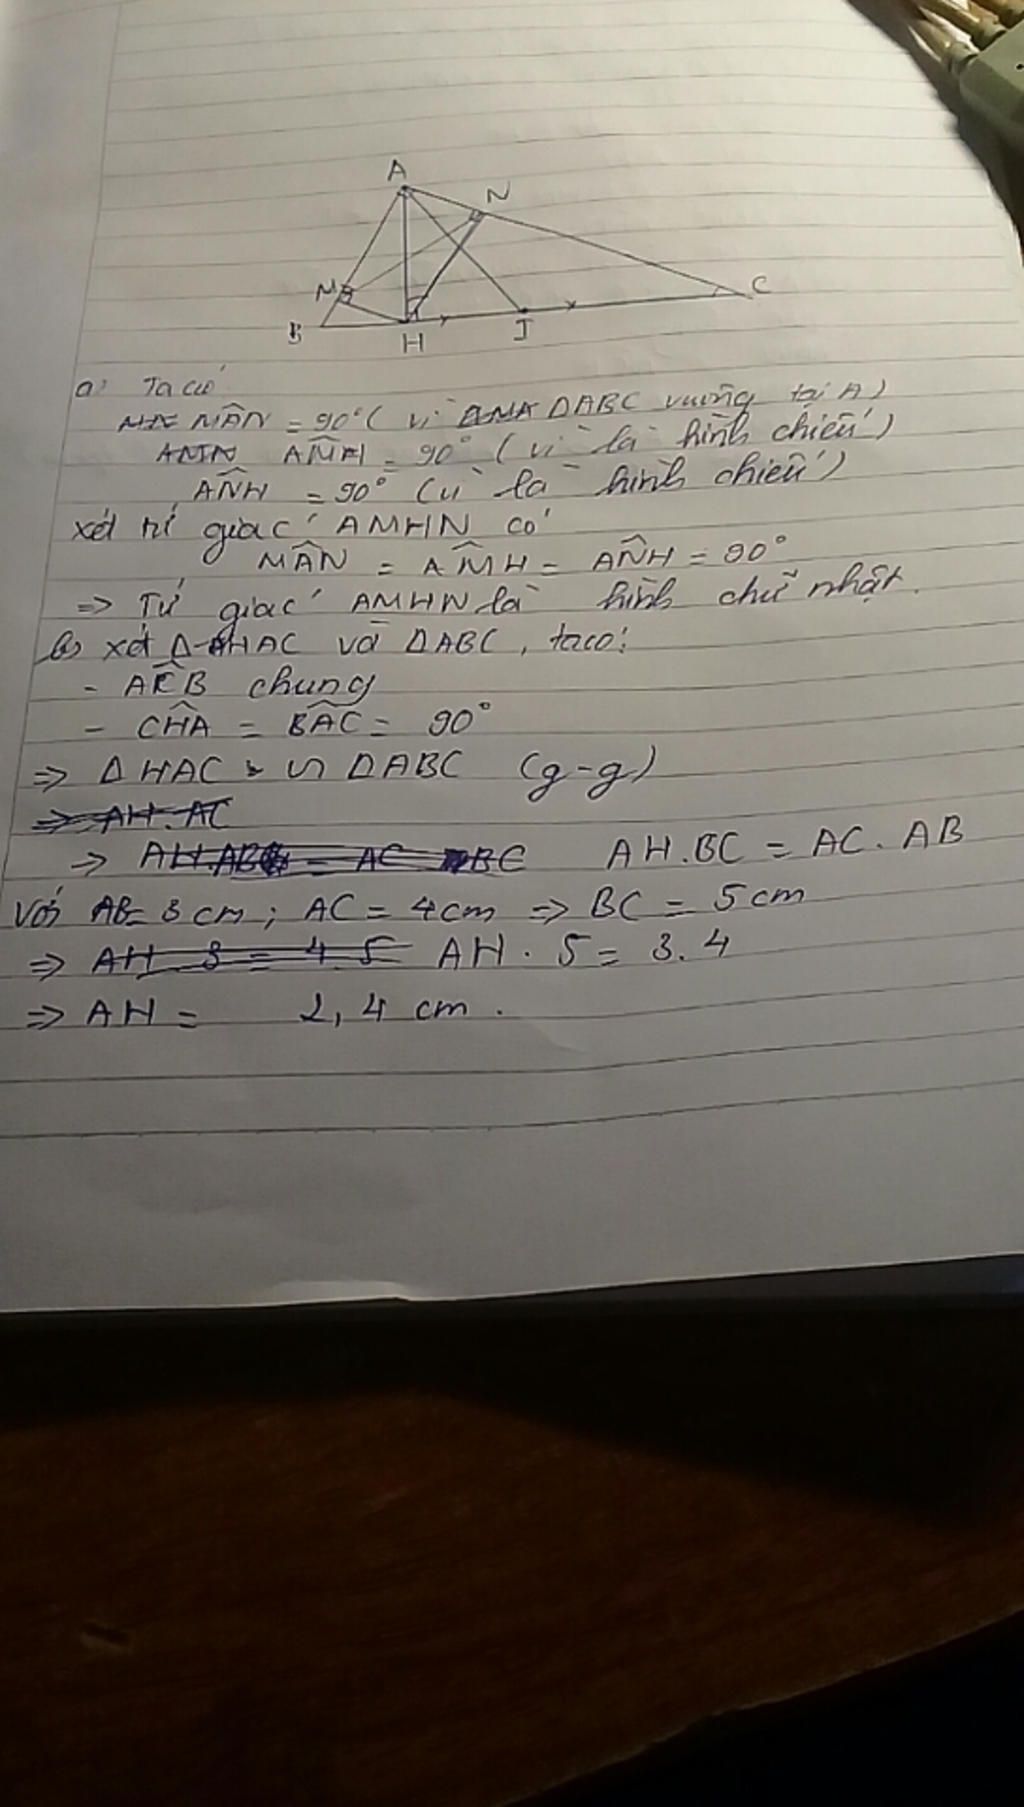 A
N
M
C
B
H
I
a) Ta có
MÂN = 90° ( vì ΔABC vuông tại A)
AM̂H = 90° ( vì là hình chiếu )
AN̂H = 90° ( vì là hình chiếu )
xét tứ giác AMHN có
MÂN = AM̂H = AN̂H = 90°
=> Tứ giác AMHN là hình chữ nhật.
b) xét Δ HAC và ΔABC, ta có:
- AĈB chung
- CĤA = BÂC = 90°
=> Δ HAC ∽ ΔABC (g-g)
=> AH.AC
=> AH.AB = AC BC AH.BC = AC.AB
Với AB= 3 cm; AC = 4 cm => BC = 5 cm
=> AH.3 = 4.5 AH . 5 = 3.4
=> AH = 2,4 cm .